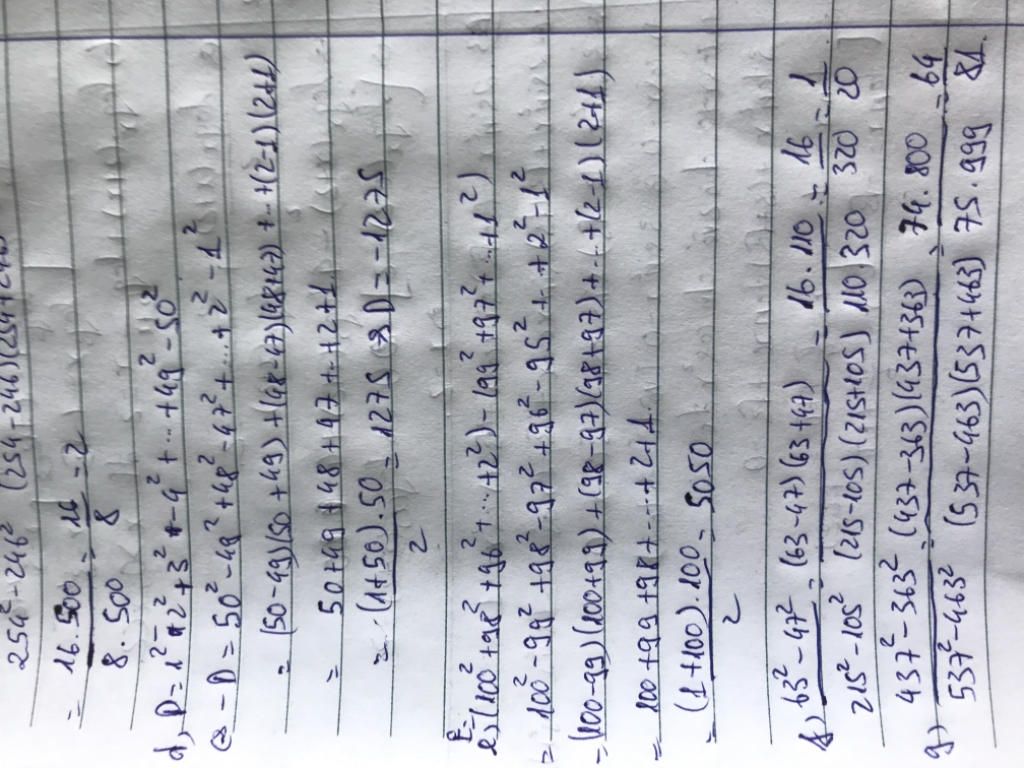 254² - 246² (254-246)(254+246)
= 16.500 / 8.500 = 16 / 8 = 2
d) D = 1² - 2² + 3² - 4² + ... + 49² - 50²
⇔ - D = 50² - 49² + 48² - 47² + ... + 2² - 1²
= (50-49)(50+49) + (48-47)(48+47) + ... + (2-1)(2+1)
= 50+49+48+47+...+2+1
= (1+50).50 / 2 = 1275 ⇔ D = -1275
E =
e) (100² + 98² + 96² + ... + 2²) - (99² + 97² + ... + 1²)
= 100² - 99² + 98² - 97² + 96² - 95² + ... + 2² - 1²
= (100-99)(100+99) + (98-97)(98+97) + ... + (2-1)(2+1)
= 100+99+98+...+2+1
= (1+100).100 / 2 = 5050
f) 63² - 47² / 215² - 105² = (63-47)(63+47) / (215-105).(215+105) = 16.110 / 110.320 = 16 / 320 = 1 / 20
g) 437² - 363² / 537² - 463² = (437-363)(437+363) / (537-463)(537+463) = 74.800 / 75.999 = 64 / 81.